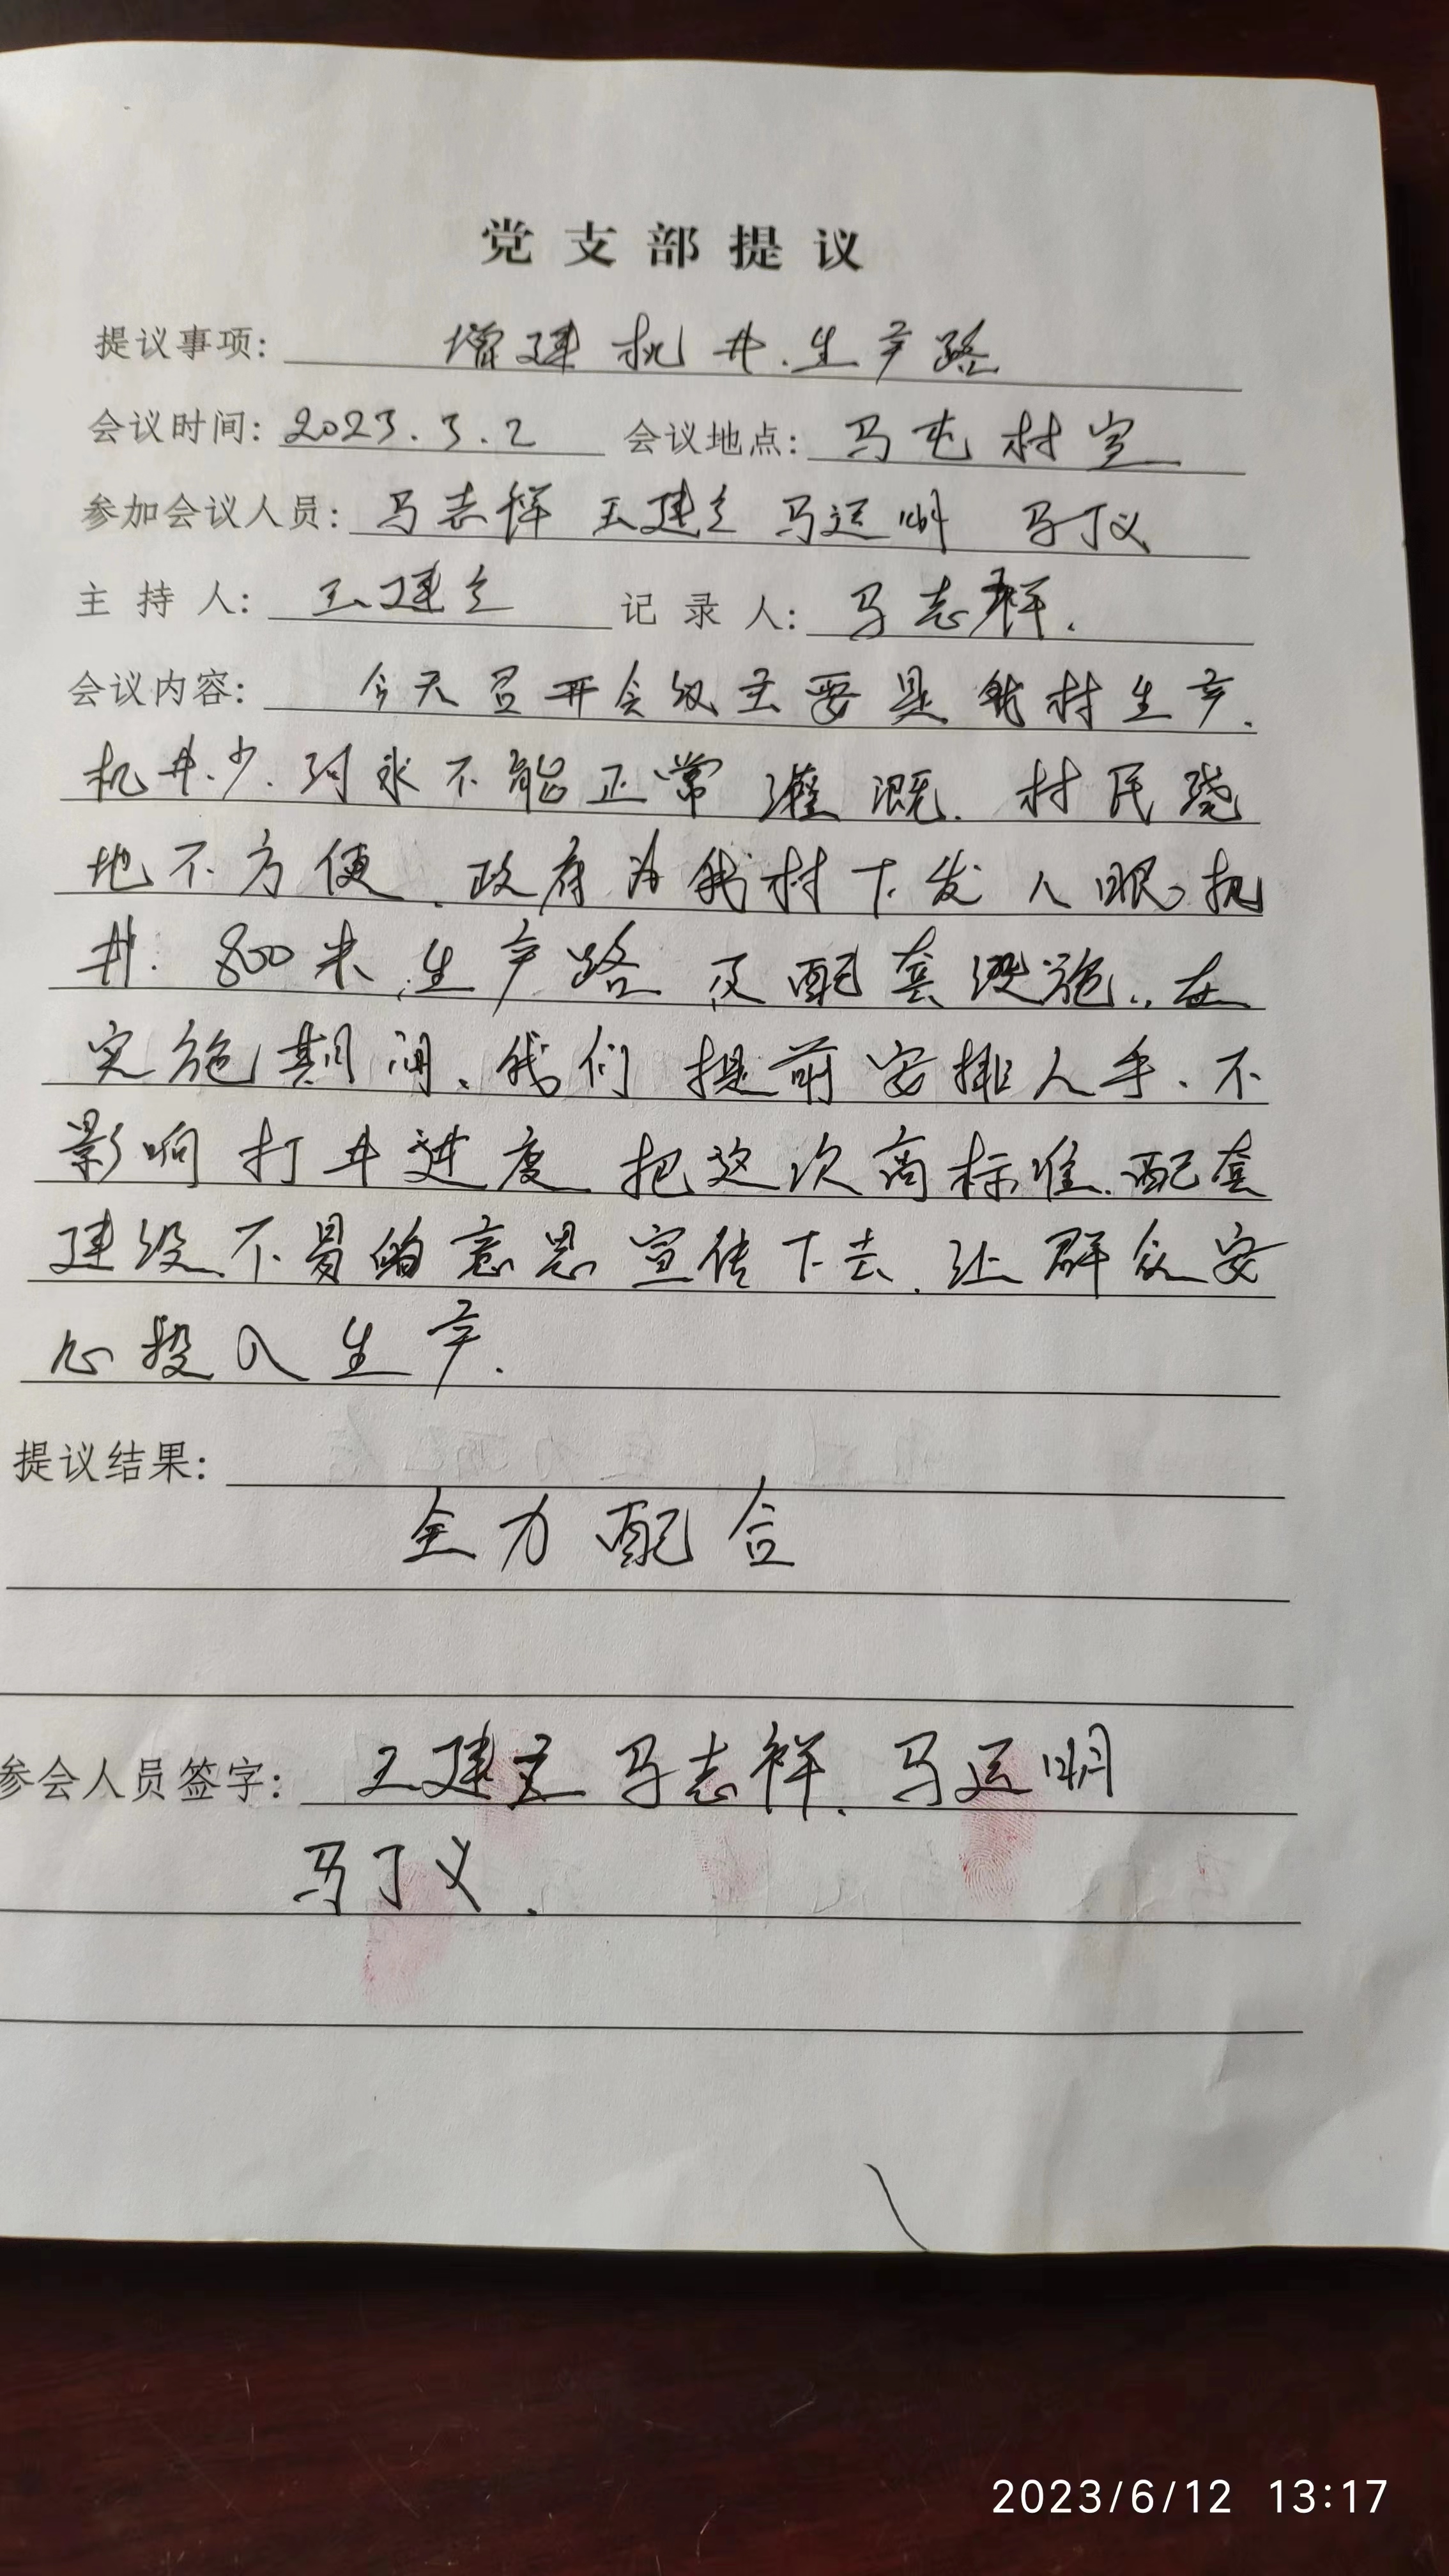 党支部提议
提议事项: 增建机井.生产路
会议时间: 2023.3.2 会议地点: 马屯村室
参加会议人员: 马志祥 王建立 马运明 马丁义
主持人: 王建立 记录人: 马志祥.
会议内容: 今天召开会议主要是我村生产.
机井.少.河水不能正常灌溉.村民浇
地不方便.政府为我村下发八眼机
井.800米.生产路及配套设施..在
实施期间.我们提前安排人手.不
影响打井进度.把这次高标准.配套
建设.不易的意思宣传下去.让群众安
心投入生产.
提议结果:
全力配合
参会人员签字: 王建立 马志祥.马运明
马丁义.
2023/6/12 13:17